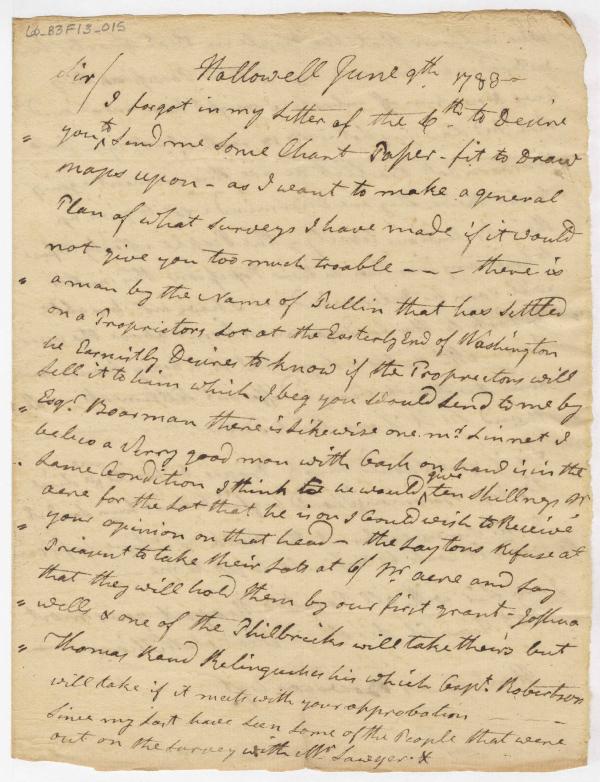 Lo_B3F13_015
Sir/ Hallowell June 9th 1788 -
I forgot in my Letter of the 6th to Desire
you to Send me Some Chart Paper - fit to Draw
maps upon - as I want to make a general
Plan of what Surveys I have made if it would
not give you too much trouble - - - there is
a man by the Name of Pullin that has Settled
on a Proprietors Lot at the Easterly End of Washington
he Earnistly Desires to know if the Proprectors will
Sell it to him which I beg you would Send to me by
Esqr. Boarman there is Likewise one mr. Linnet I
beleve a Verry good man with Cash on hand is in the
Same Condition I think he would give ten Shillings pr
acre for the Lot that he is on I Could wish to Receive
your opinion on that head - the Laytons Refuse at
Prisent to take their Lots at 6/ pr acre and Say
that they will hold them by our first grant - Joshua
wells & one of the Philbricks will take theirs but
Thomas Rand Relinquishes his which Capt. Robertson
will take if it meets with your approbation - - -
Since my Last have Seen Some of the People that were
out on the Survey with Mr. Sawyer &